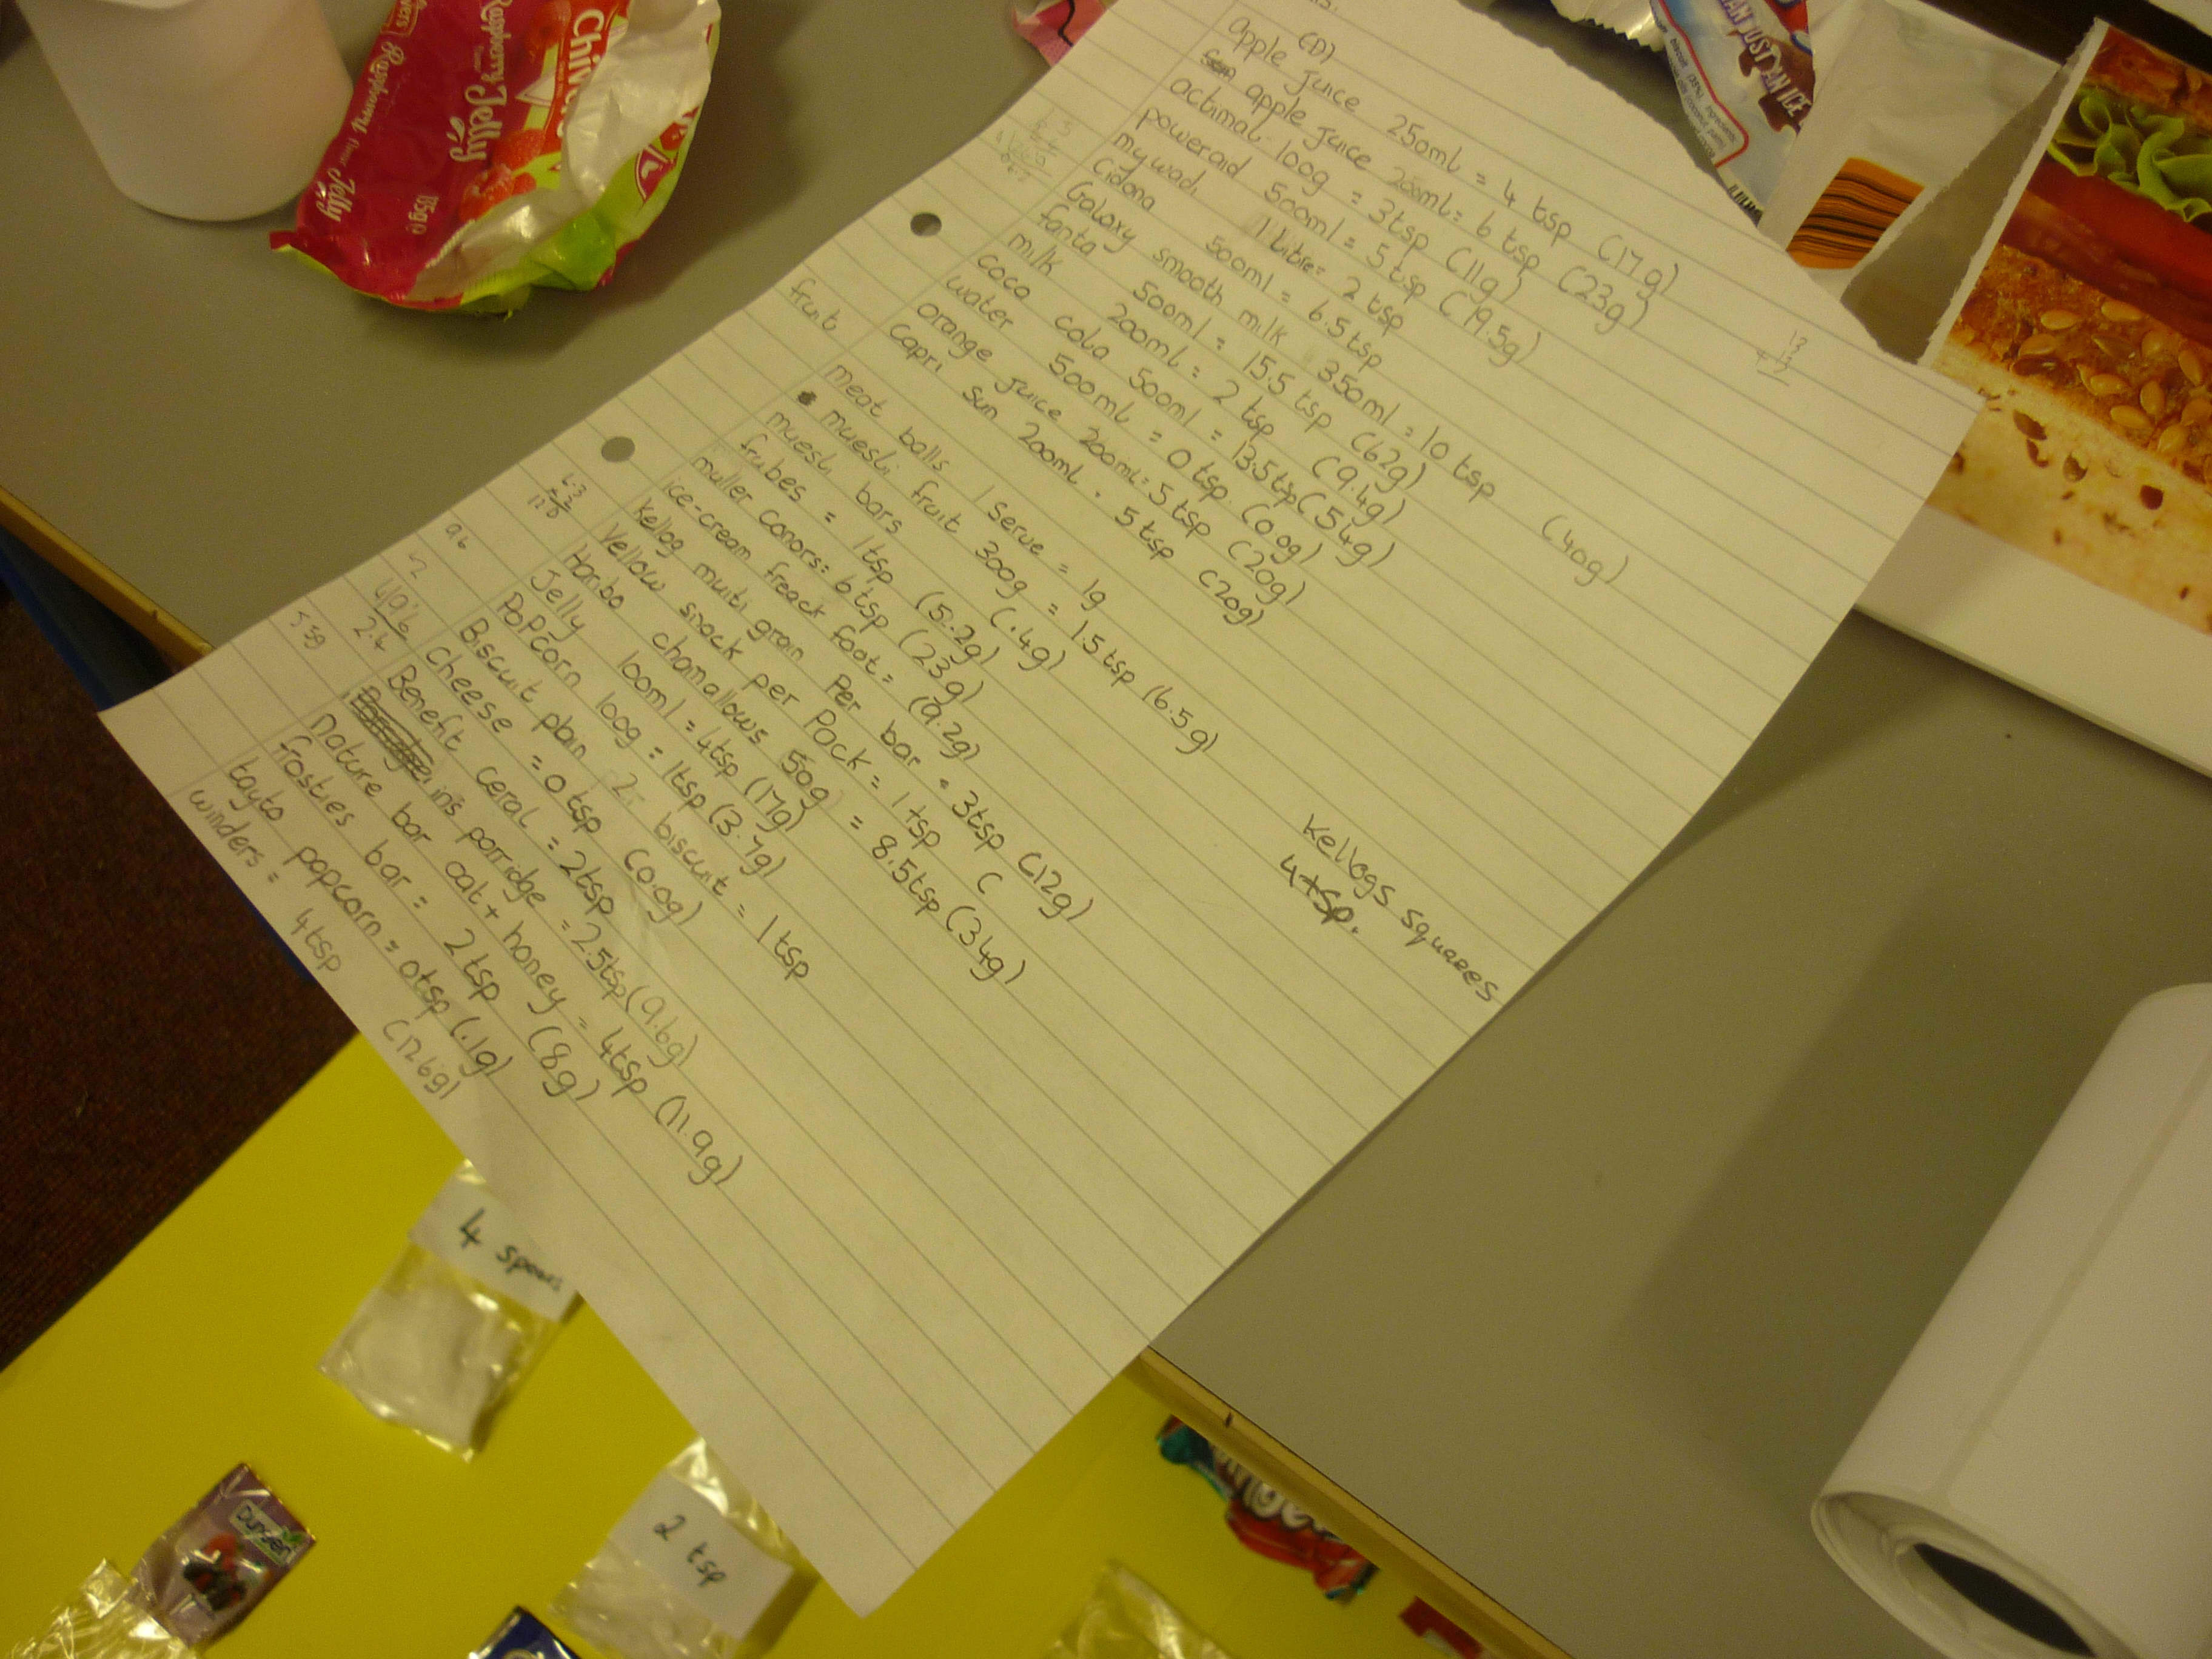 (D)
apple juice 250ml = 4 tsp (17g)
apple juice 200ml = 6 tsp (23g)
actimal 100g = 3tsp (11g)
poweraid 500ml = 5tsp (19.5g)
mywadi 1 Litre = 2 tsp
Cidona 500ml = 6.5tsp
Galaxy smooth milk 350ml = 10 tsp (40g)
fanta 500ml = 15.5 tsp (62g)
milk 200ml = 2 tsp (9.4g)
coca cola 500ml = 13.5tsp (54g)
water 500ml = 0 tsp (0.0g)
orange juice 200ml = 5 tsp (20g)
Capri sun 200ml = 5 tsp (20g)
fruit
meat balls 1 serve = 1g
muesli fruit 300g = 1.5 tsp (6.5g)
muesli bars (.4g)
frubes = 1tsp (5.2g)
muller conors = 6 tsp (23g)
ice-cream freack foot = (9.2g)
Kellog multi grain Per bar = 3tsp (12g)
Yellow snack per Pack = 1 tsp (
Haribo chamallows 50g = 8.5tsp (34g)
Jelly 100ml = 4tsp (17g)
PoPcorn 100g = 1tsp (3.7g)
Biscuit plain 2 biscuit = 1 tsp
Cheese = 0 tsp (0.0g)
Benefit ceral = 2tsp
in's porridge = 2.5tsp (9.6g)
nature bar oat + honey = 4tsp (11.9g)
frosties bar = 2 tsp (8g)
tayto popcorn = 0tsp (.1g)
winders = 4tsp (12.6g)
Kellogs squares
4 tsp.
4 spoons
2 tsp
Raspberry Jelly
Raspberry flavour Jelly
135g
Chiv